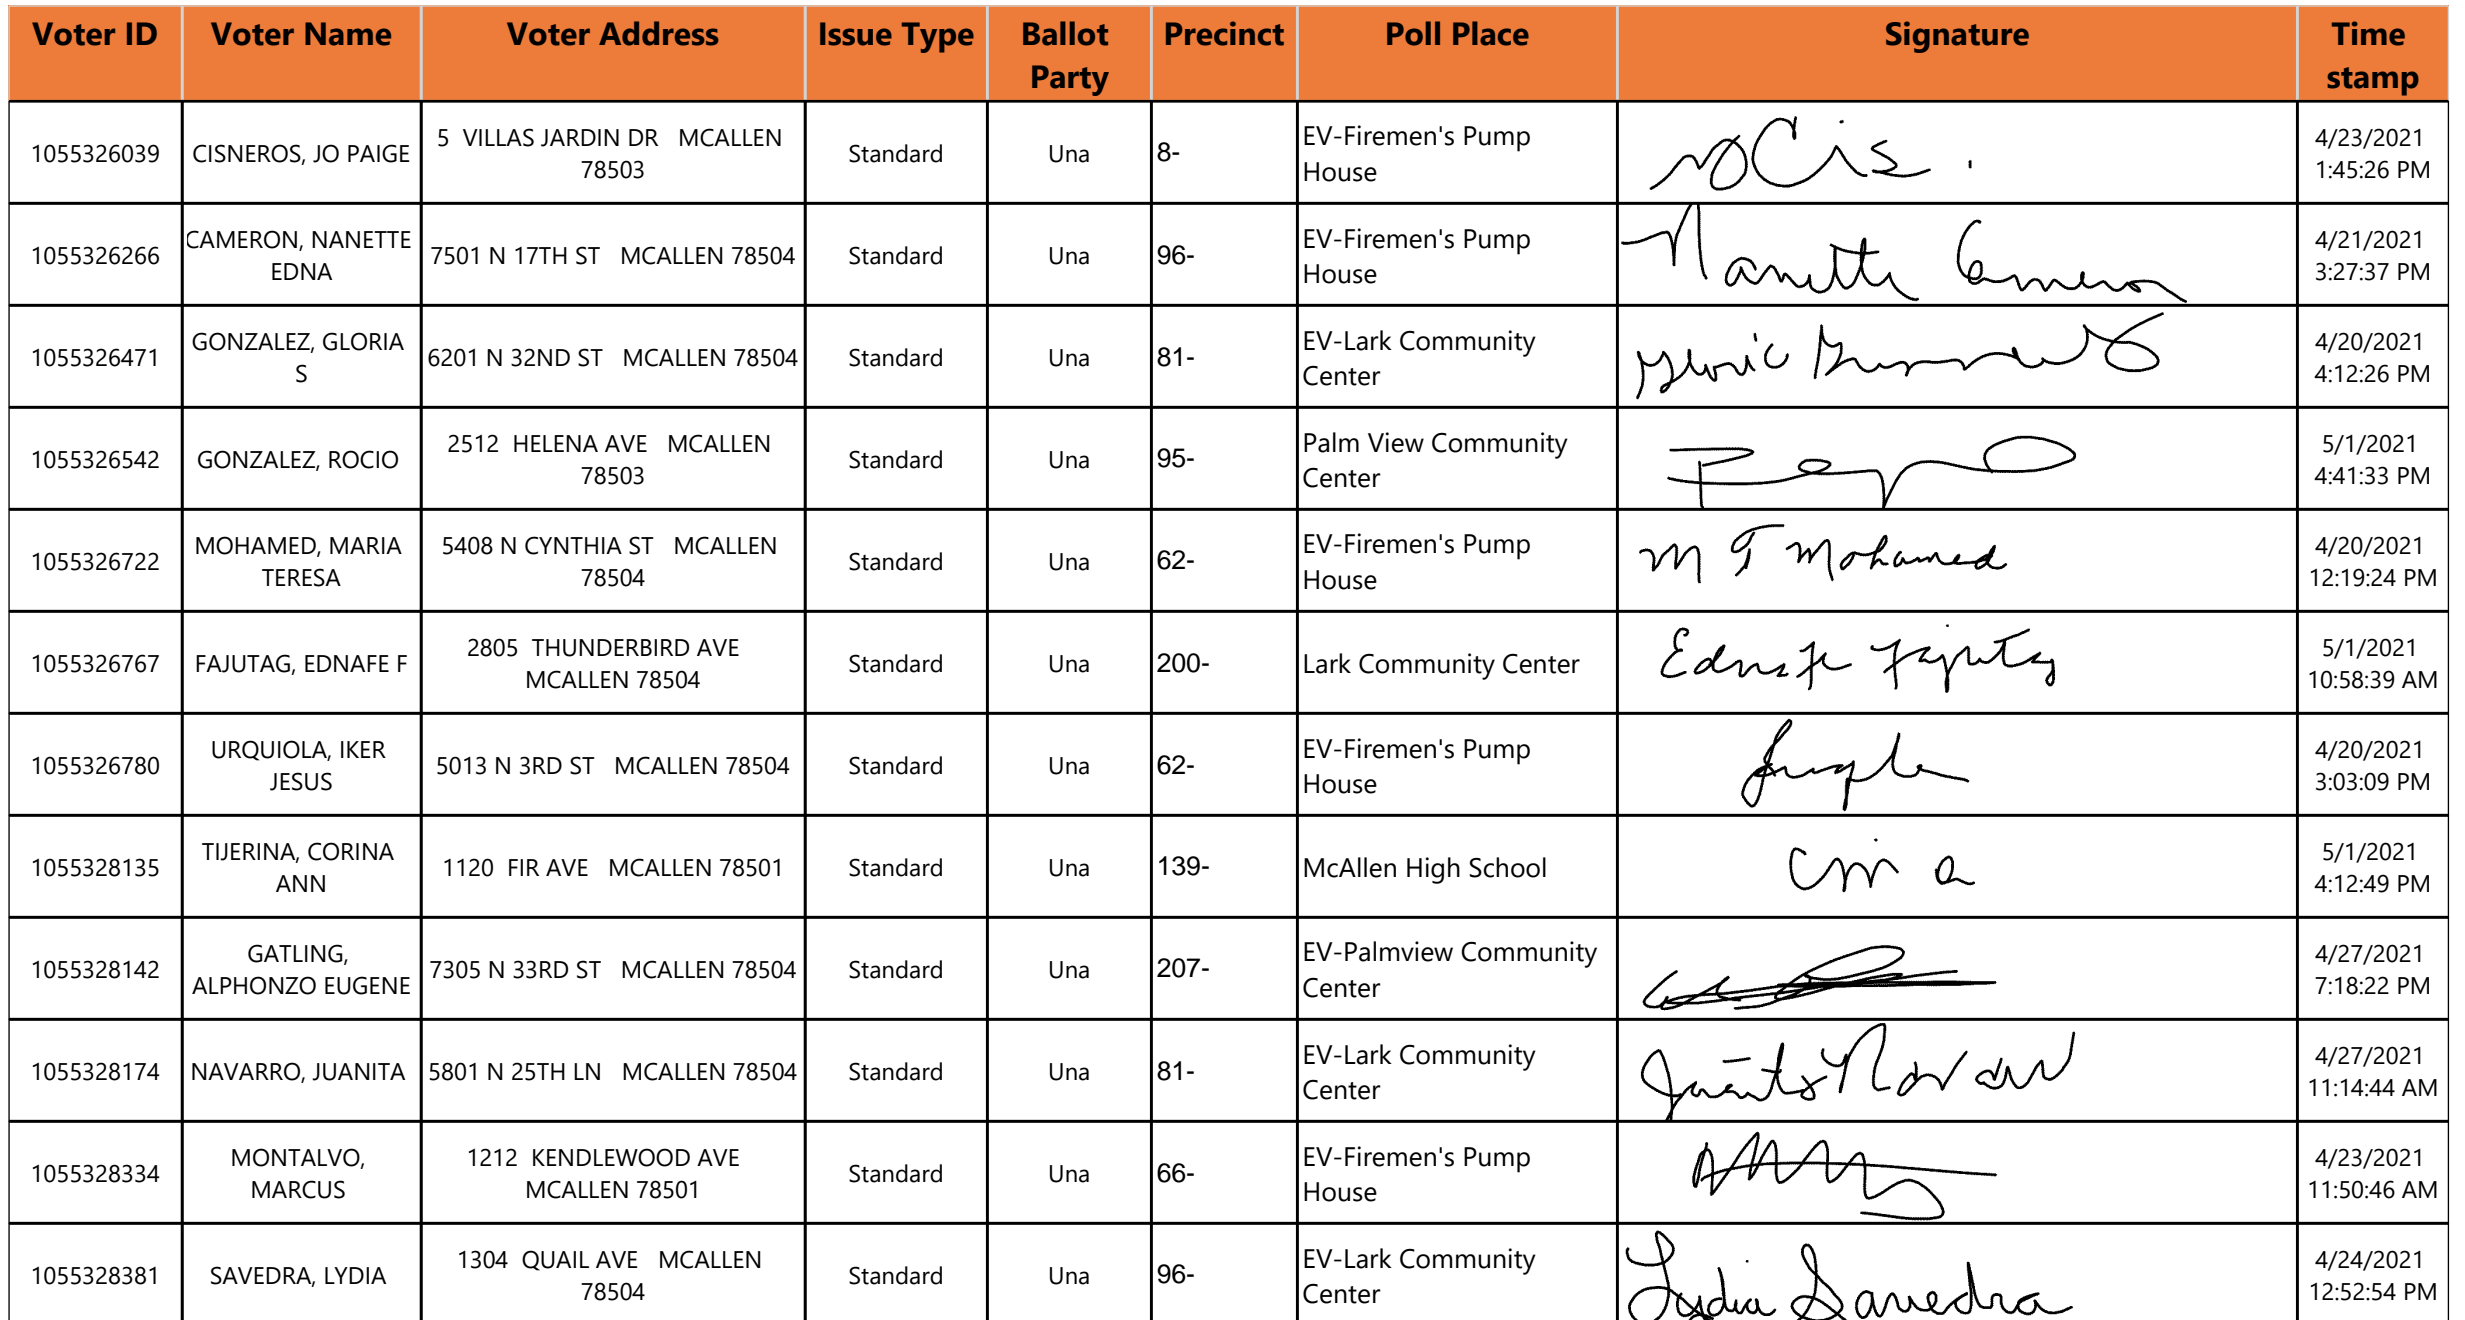 Voter ID Voter Name Voter Address Issue Type Ballot Party Precinct Poll Place Signature Time stamp
1055326039 CISNEROS, JO PAIGE 5 VILLAS JARDIN DR MCALLEN 78503 Standard Una 8- EV-Firemen's Pump House 4/23/2021 1:45:26 PM
1055326266 CAMERON, NANETTE EDNA 7501 N 17TH ST MCALLEN 78504 Standard Una 96- EV-Firemen's Pump House Nanette Cameron 4/21/2021 3:27:37 PM
1055326471 GONZALEZ, GLORIA S 6201 N 32ND ST MCALLEN 78504 Standard Una 81- EV-Lark Community Center 4/20/2021 4:12:26 PM
1055326542 GONZALEZ, ROCIO 2512 HELENA AVE MCALLEN 78503 Standard Una 95- Palm View Community Center 5/1/2021 4:41:33 PM
1055326722 MOHAMED, MARIA TERESA 5408 N CYNTHIA ST MCALLEN 78504 Standard Una 62- EV-Firemen's Pump House M T Mohamed 4/20/2021 12:19:24 PM
1055326767 FAJUTAG, EDNAFE F 2805 THUNDERBIRD AVE MCALLEN 78504 Standard Una 200- Lark Community Center Ednafe Fajutag 5/1/2021 10:58:39 AM
1055326780 URQUIOLA, IKER JESUS 5013 N 3RD ST MCALLEN 78504 Standard Una 62- EV-Firemen's Pump House 4/20/2021 3:03:09 PM
1055328135 TIJERINA, CORINA ANN 1120 FIR AVE MCALLEN 78501 Standard Una 139- McAllen High School 5/1/2021 4:12:49 PM
1055328142 GATLING, ALPHONZO EUGENE 7305 N 33RD ST MCALLEN 78504 Standard Una 207- EV-Palmview Community Center 4/27/2021 7:18:22 PM
1055328174 NAVARRO, JUANITA 5801 N 25TH LN MCALLEN 78504 Standard Una 81- EV-Lark Community Center Juanita Navarro 4/27/2021 11:14:44 AM
1055328334 MONTALVO, MARCUS 1212 KENDLEWOOD AVE MCALLEN 78501 Standard Una 66- EV-Firemen's Pump House 4/23/2021 11:50:46 AM
1055328381 SAVEDRA, LYDIA 1304 QUAIL AVE MCALLEN 78504 Standard Una 96- EV-Lark Community Center Lydia Savedra 4/24/2021 12:52:54 PM